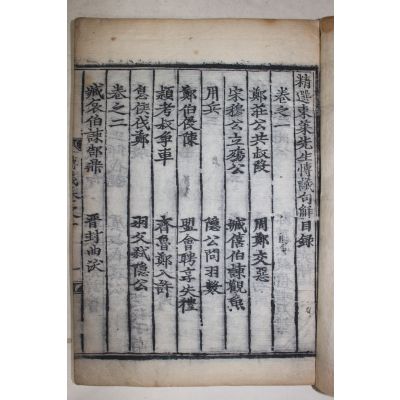 精選東萊先生博議句解目錄
卷之一
鄭莊公共叔段 周鄭交惡
宋穆公立殤公 臧僖伯諫觀魚
用兵 隱公問羽數
鄭伯侵陳 盟會聘享失禮
潁考叔爭車 齊魯鄭入許
息侯伐鄭 羽父弑隱公
卷之二
臧哀伯諫郜鼎 晋封曲沃